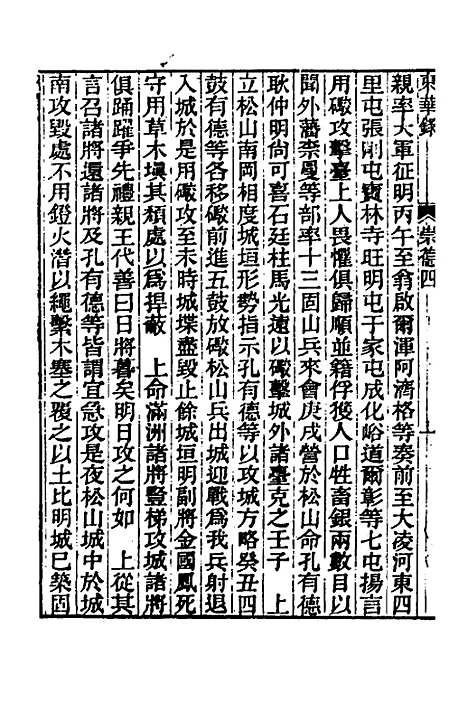 東華錄 崇德四
親率大軍征明丙午至翁啟爾渾阿濟格等奏前至大凌河東四
里屯張剛屯寶林寺旺明屯于家屯成化峪道爾彰等七屯揚言
用礮攻擊臺上人畏懼俱歸順並籍俘獲人口牲畜銀兩數目以
聞外藩柰曼等部率十三固山兵來會庚戌營於松山命孔有德
耿仲明尚可喜石廷柱馬光遠以礮擊城外諸臺克之壬子 上
立松山南岡相度城垣形勢指示孔有德等以攻城方略癸丑四
鼓有德等各移礮前進五鼓放礮松山兵出城迎戰為我兵射退
入城於是用礮攻至未時城堞盡毀止餘城垣明副將金國鳳死
守用草木塡其頹處以為捍蔽 上命滿洲諸將豎梯攻城諸將
俱踴躍爭先禮親王代善曰日將暮矣明日攻之何如 上從其
言召諸將還諸將及孔有德等皆謂宜急攻是夜松山城中於城
南攻毀處不用鐙火潛以繩繫木塞之覆之以土比明城已築固